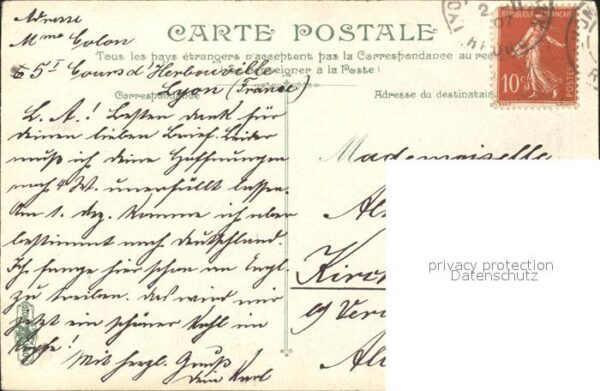 Adresse
Mme Colon
5I Cours d'Herbouville
Lyon (France)
CARTE POSTALE
Tous les pays étrangers n'acceptent pas la Correspondance au recto
(Se renseigner à la Poste)
Correspondance
Adresse du destinataire
RÉPUBLIQUE FRANÇAISE
10c
POSTES
L. A.! Besten Dank für
deinen lieben Brief. Leider
muß ich deine Hoffnungen
nach 4 W. unerfüllt lassen.
Am 1. Dez. komme ich aber
bestimmt nach Deutschland.
Ich fange hier schon an Engl.
zu treiben. Das wird mir
jetzt ein schöner Kohl im
Kopfe!
Mit herzl. Gruß
dein Karl
Mademoiselle
Kirch
privacy protection
Datenschutz